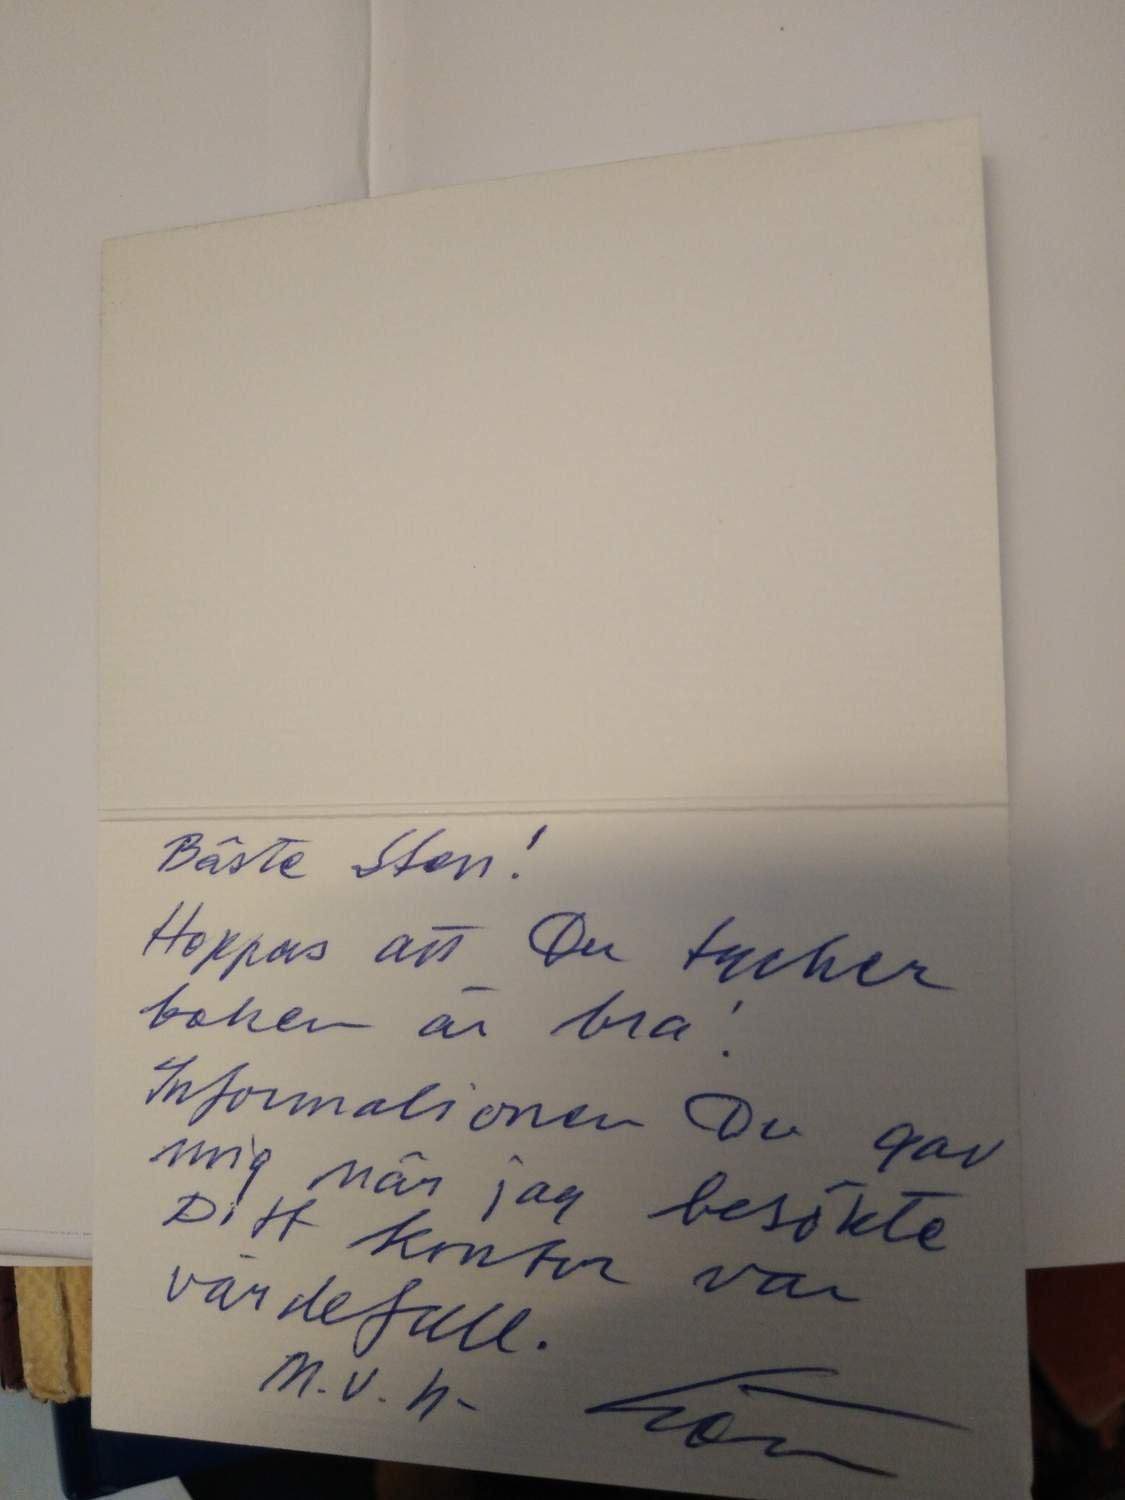 Bäste Sten!
Hoppas att Du tycker
boken är bra!
Informationen Du gav
mig när jag besökte
Ditt kontor var
värdefull.
M.V.h.